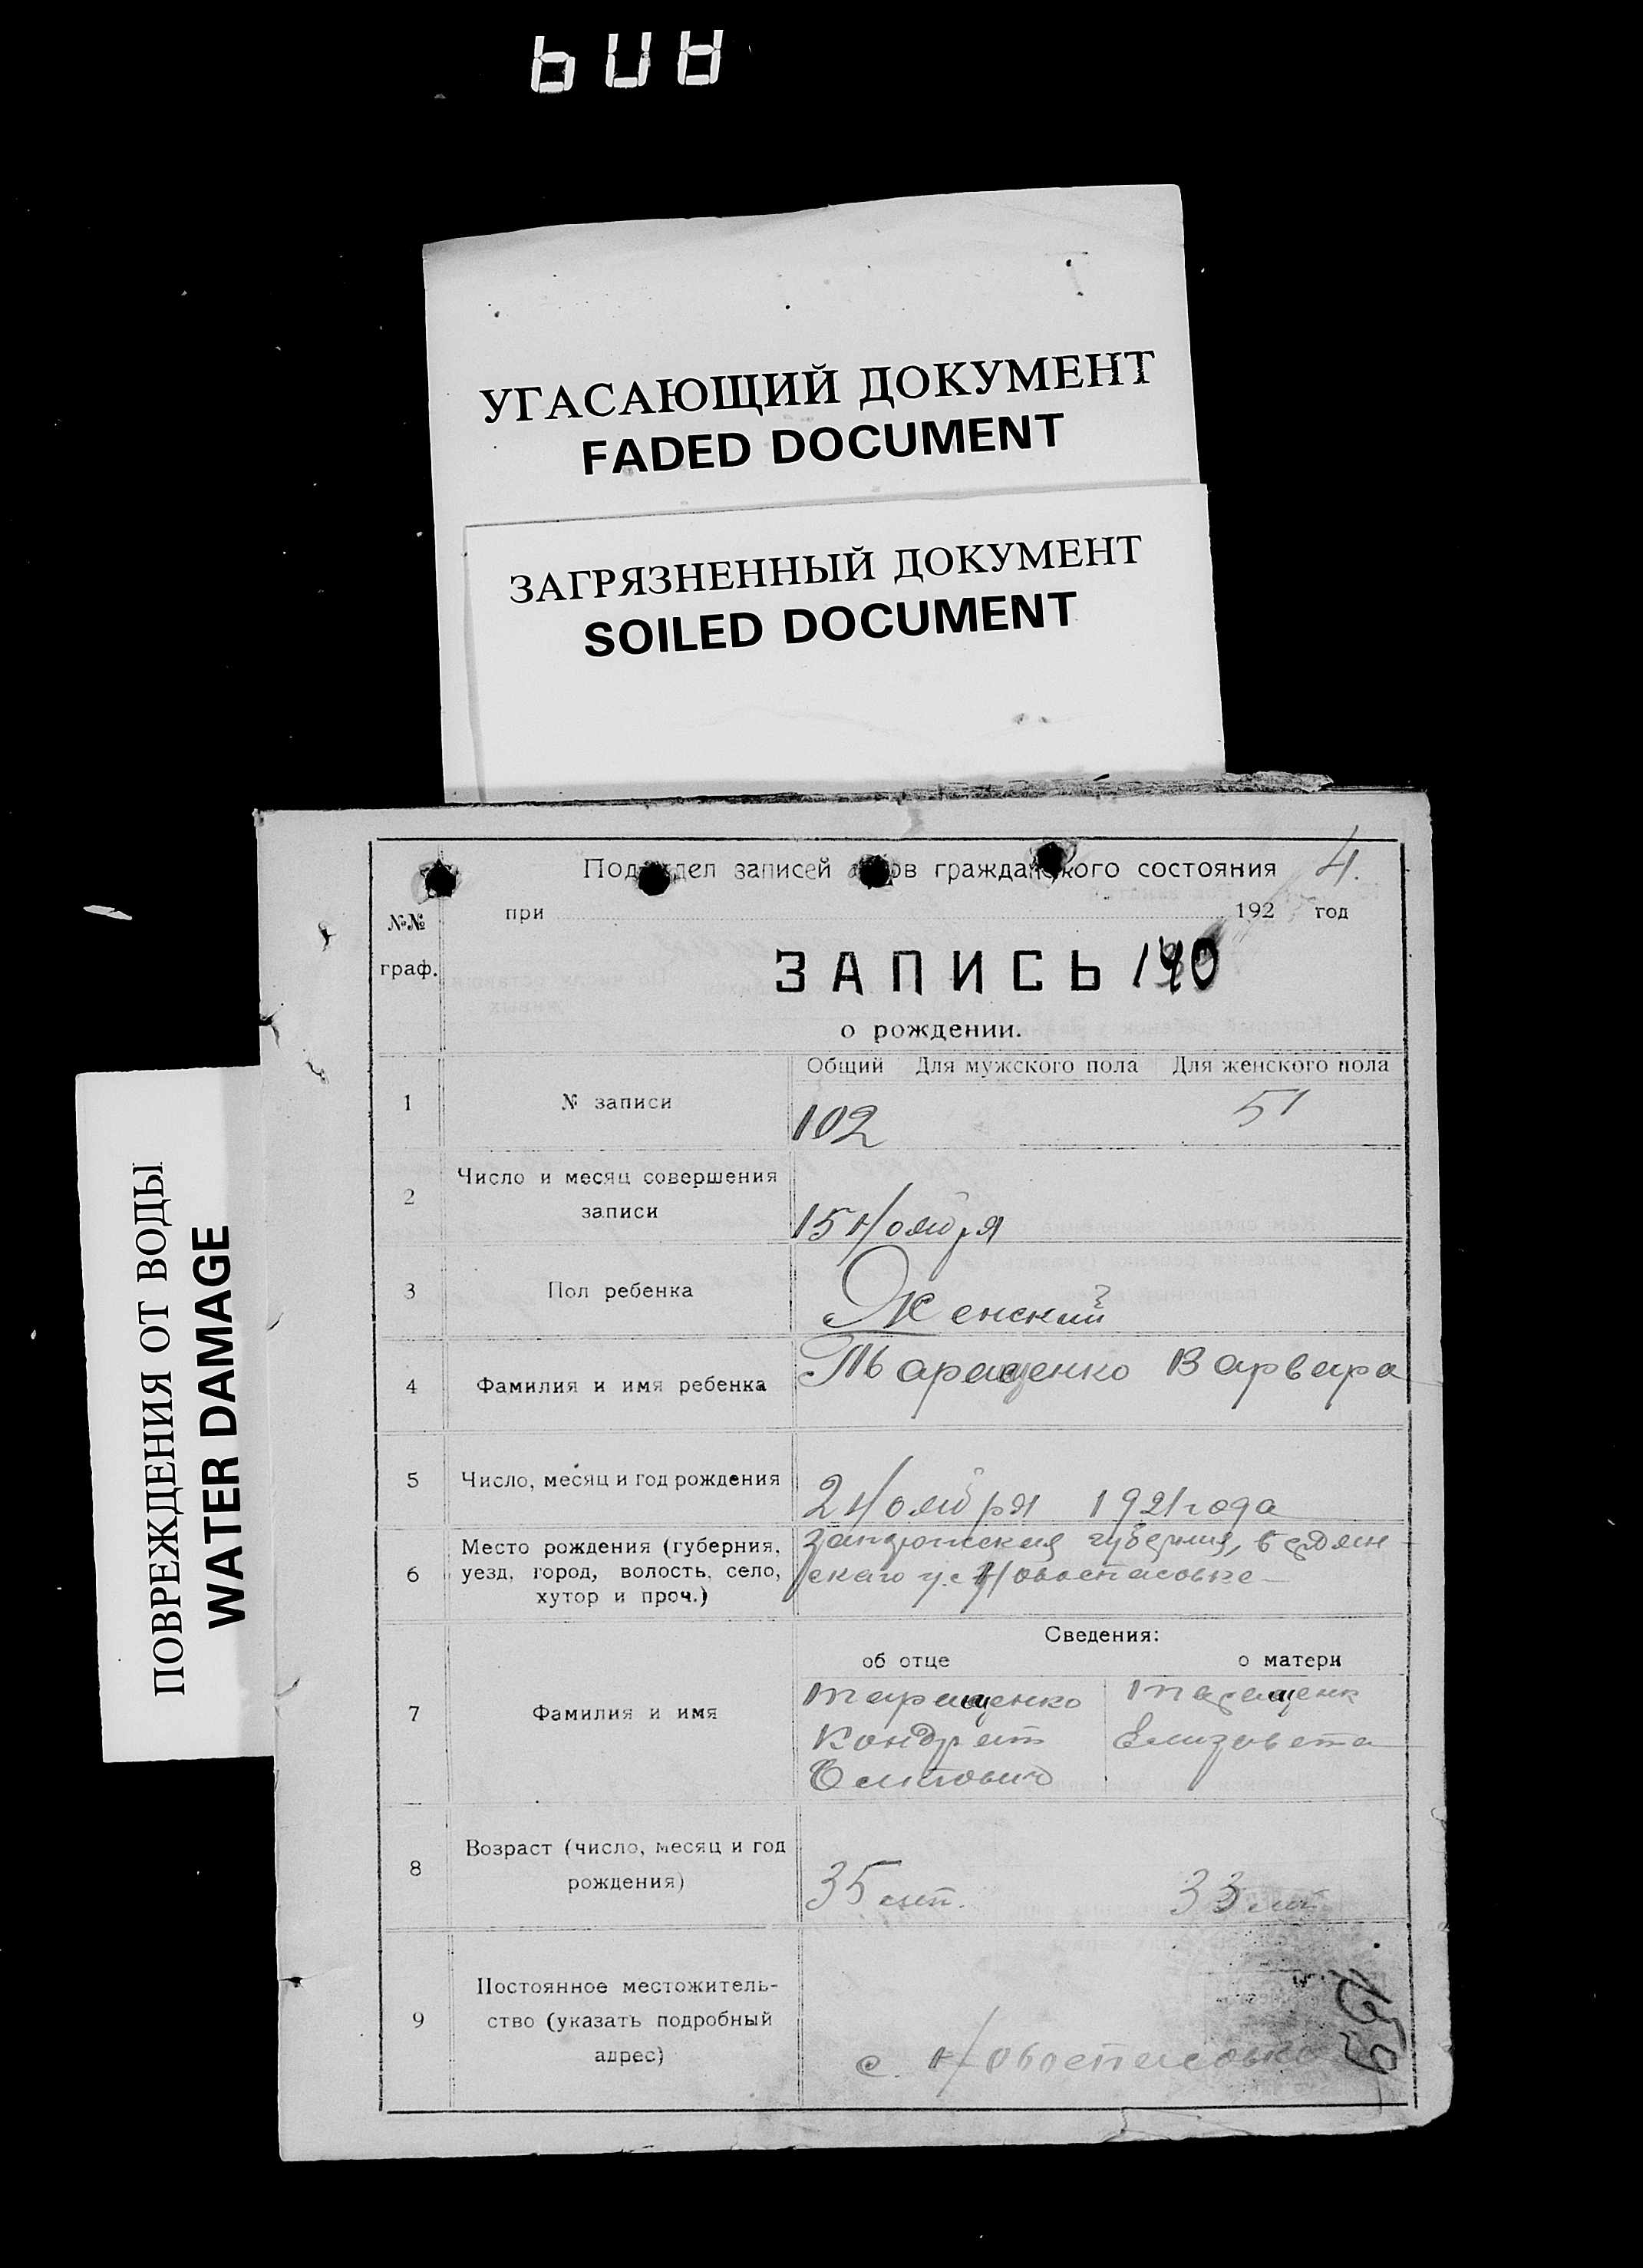 УГАСАЮЩИЙ ДОКУМЕНТ
FADED DOCUMENT
ЗАГРЯЗНЕННЫЙ ДОКУМЕНТ
SOILED DOCUMENT
ПОВРЕЖДЕНИЯ ОТ ВОДЫ
WATER DAMAGE
Под дел записей ов граждан кого состояния 4.
при 192 год
№№
граф.
ЗАПИСЬ
о рождении.
Общий Для мужского пола Для женского пола
1 № записи 102 51
2 Число и месяц совершения
записи
15 Ноября
3 Пол ребенка Женский
4 Фамилия и имя ребенка Таращенко Варвара
5 Число, месяц и год рождения 2 Ноября 1921 года
6 Место рождения (губерния,
уезд, город, волость, село,
хутор и проч.)
губерния, Бердян
скаго у. с Новоспасовке
Сведения:
об отце о матери
7 Фамилия и имя
Таращенко Таращенк
Кондрат Елизавета
8 Возраст (число, месяц и год
рождения)
35 лет. 33 лет
9 Постоянное местожитель-
ство (указать подробный
адрес)
с. Новоспасовка